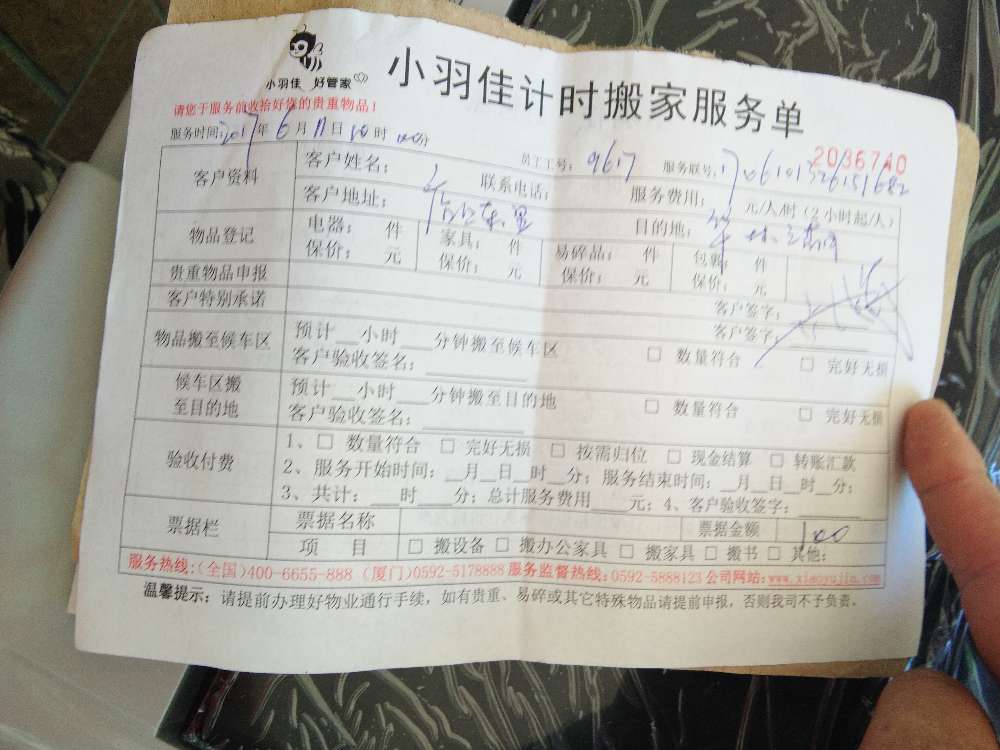 小羽佳 好管家
小羽佳计时搬家服务单
请您于服务前收拾好您的贵重物品！
服务时间：2017年6月11日10时00分 员工工号：9617 服务联号：2036740
客户资料 客户姓名： 联系电话： 服务费用： 元/人/时（2小时起/人）
客户地址： 目的地：
物品登记 电器： 件 家具： 件 易碎品： 件 包裹： 件
保价： 元 保价： 元 保价： 元 保价： 元
贵重物品申报 客户签字：
客户特别承诺 客户签字：
物品搬至候车区 预计__小时__分钟搬至候车区 □ 数量符合 □ 完好无损
客户验收签名：
候车区搬至目的地 预计__小时__分钟搬至目的地 □ 数量符合 □ 完好无损
客户验收签名：
验收付费 1、□ 数量符合 □ 完好无损 □ 按需归位 □ 现金结算 □ 转账汇款
2、服务开始时间：__月__日__时__分；服务结束时间：__月__日__时__分；
3、共计：__时__分；总计服务费用__元；4、客户验收签字：
票据栏 票据名称 票据金额 100
项 目 □ 搬设备 □ 搬办公家具 □ 搬家具 □ 搬书 □ 其他：
服务热线：(全国)400-6655-888 (厦门)0592-5178888 服务监督热线：0592-5888123 公司网站：www.xiaoyujia.com
温馨提示：请提前办理好物业通行手续，如有贵重、易碎或其它特殊物品请提前申报，否则我司不予负责。